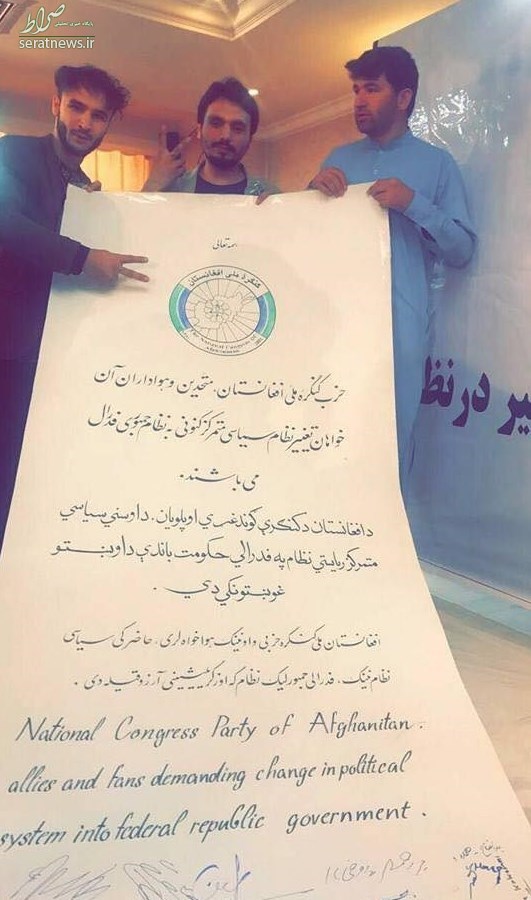 صراط
پایگاه خبری تحلیلی
seratnews.ir
بسمه تعالی
کنگرهٔ ملی افغانستان
The National Congress of
Afghanistan
حزب کنگرهٔ ملی افغانستان، متحدین و هواداران آن
خواهان تغییر نظام سیاسی متمرکز کنونی به نظام جمهوری فدرال
می باشند.
د افغانستان د کنگرې گوند غړي او پلویان، د اوسني سیاسي
متمرکز ریاستي نظام په فدرالي حکومت باندې د اوښتو
غوښتونکي دي.
افغانستان ملی کنگره حزبی و اونینگ هواخواه لری، حاضر کی سیاسی
نظام نینگ، فدرالی جمهورلیک نظام که اوزگریشینی آرزو قیله دی.
National Congress Party of Afghanitan.
allies and fans demanding change in political
system into federal republic government.
یر در نظ